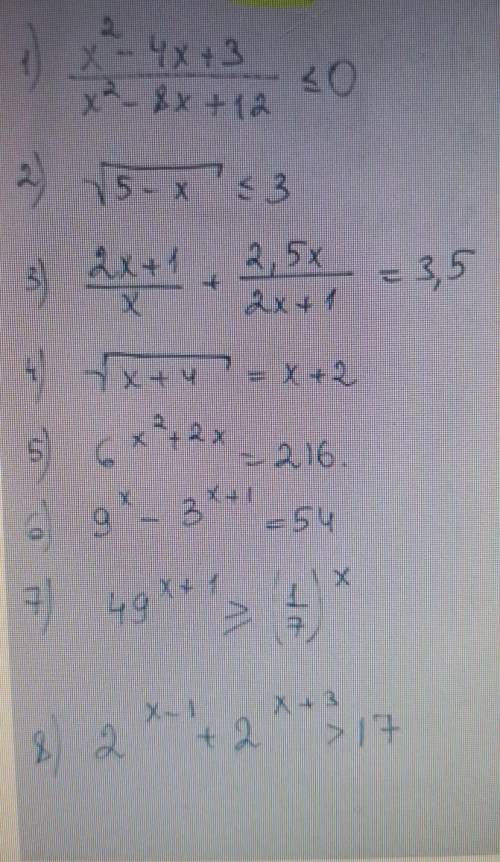 1) (x² - 4x + 3)/(x² - 8x + 12) ≤ 0
2) √(5 - x) ≤ 3
3) (2x + 1)/x + (2,5x)/(2x + 1) = 3,5
4) √(x + 4) = x + 2
5) 6^(x² + 2x) = 216.
6) 9^x - 3^(x + 1) = 54
7) 49^(x + 1) ≥ (1/7)^x
8) 2^(x - 1) + 2^(x + 3) > 17